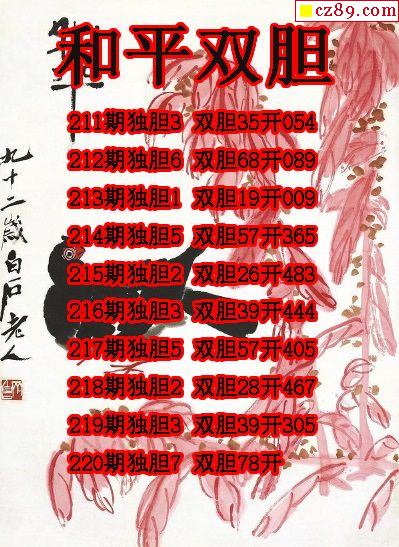 cz89.com
和平双胆
211期独胆3 双胆35开054
212期独胆6 双胆68开089
213期独胆1 双胆19开009
214期独胆5 双胆57开365
215期独胆2 双胆26开483
216期独胆3 双胆39开444
217期独胆5 双胆57开405
218期独胆2 双胆28开467
219期独胆3 双胆39开305
220期独胆7 双胆78开
九十二岁白石老人